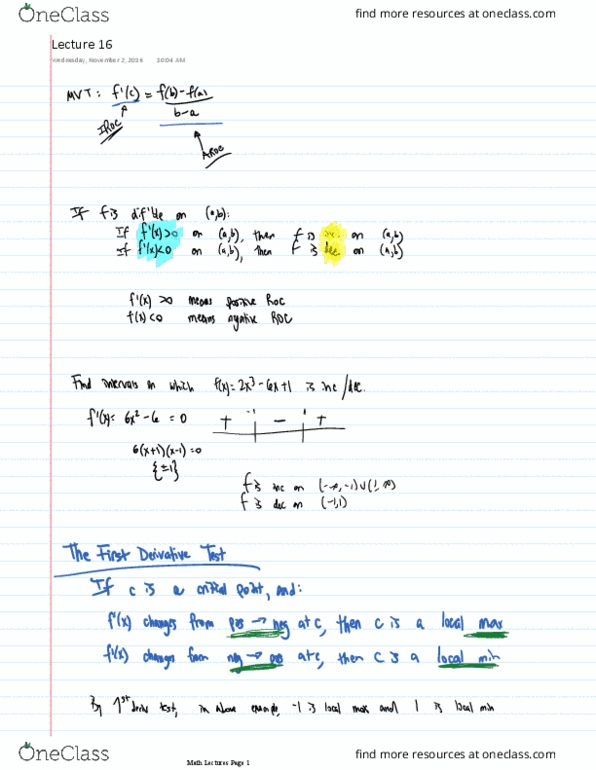 OneClass
find more resources at oneclass.com
Lecture 16
Wednesday, November 2, 2016 10:04 AM
MVT: f'(c) = f(b)-f(a)
b-a
IROC
AROC
If f is dif'ble on (a,b):
If f'(x)>0 on (a,b), then f is inc. on (a,b)
If f'(x)<0 on (a,b), then f is dec on (a,b)
f'(x) >0 means positive ROC
f(x) <0 means negative ROC
Find intervals on which f(x)=2x³-6x+1 is inc/dec.
f'(x)= 6x²-6 = 0 + -1 - 1 +
6(x+1)(x-1)=0
{±1}
f is inc on (-∞,-1)∪(1,∞)
f is dec on (-1,1)
The First Derivative Test
If c is a critical point, and:
f'(x) changes from pos → neg at c, then c is a local max
f'(x) changes from neg → pos at c, then c is a local min
By 1st deriv test, in above example, -1 is local max and 1 is local min
OneClass
Math Lectures Page 1
find more resources at oneclass.com